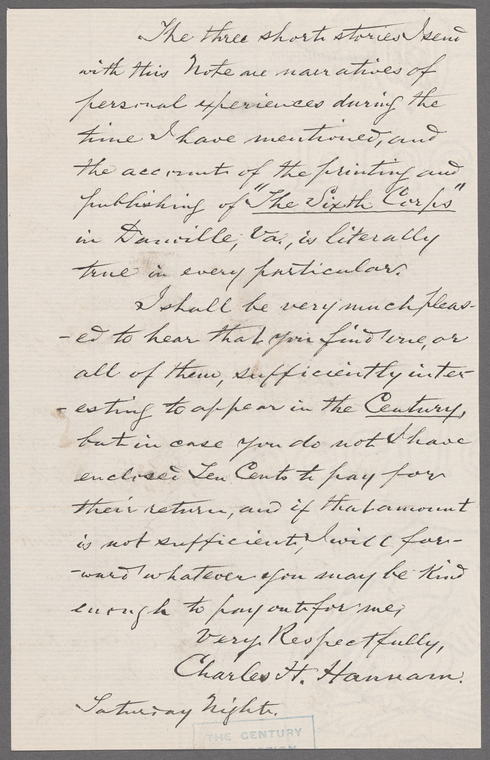 The three short stories I send
with this Note are narratives of
personal experiences during the
time I have mentioned, and
the account of the printing and
publishing of "The Sixth Corps"
in Danville, Va., is literally
true in every particular.
I shall be very much pleas-
-ed to hear that you find one, or
all of them, sufficiently inter-
-esting to appear in the Century,
but in case you do not I have
enclosed Ten Cents to pay for
their return, and if that amount
is not sufficient, I will for-
-ward whatever you may be kind
enough to pay out for me,
Very Respectfully,
Charles H. Hannam.
Saturday Night.
THE CENTURY